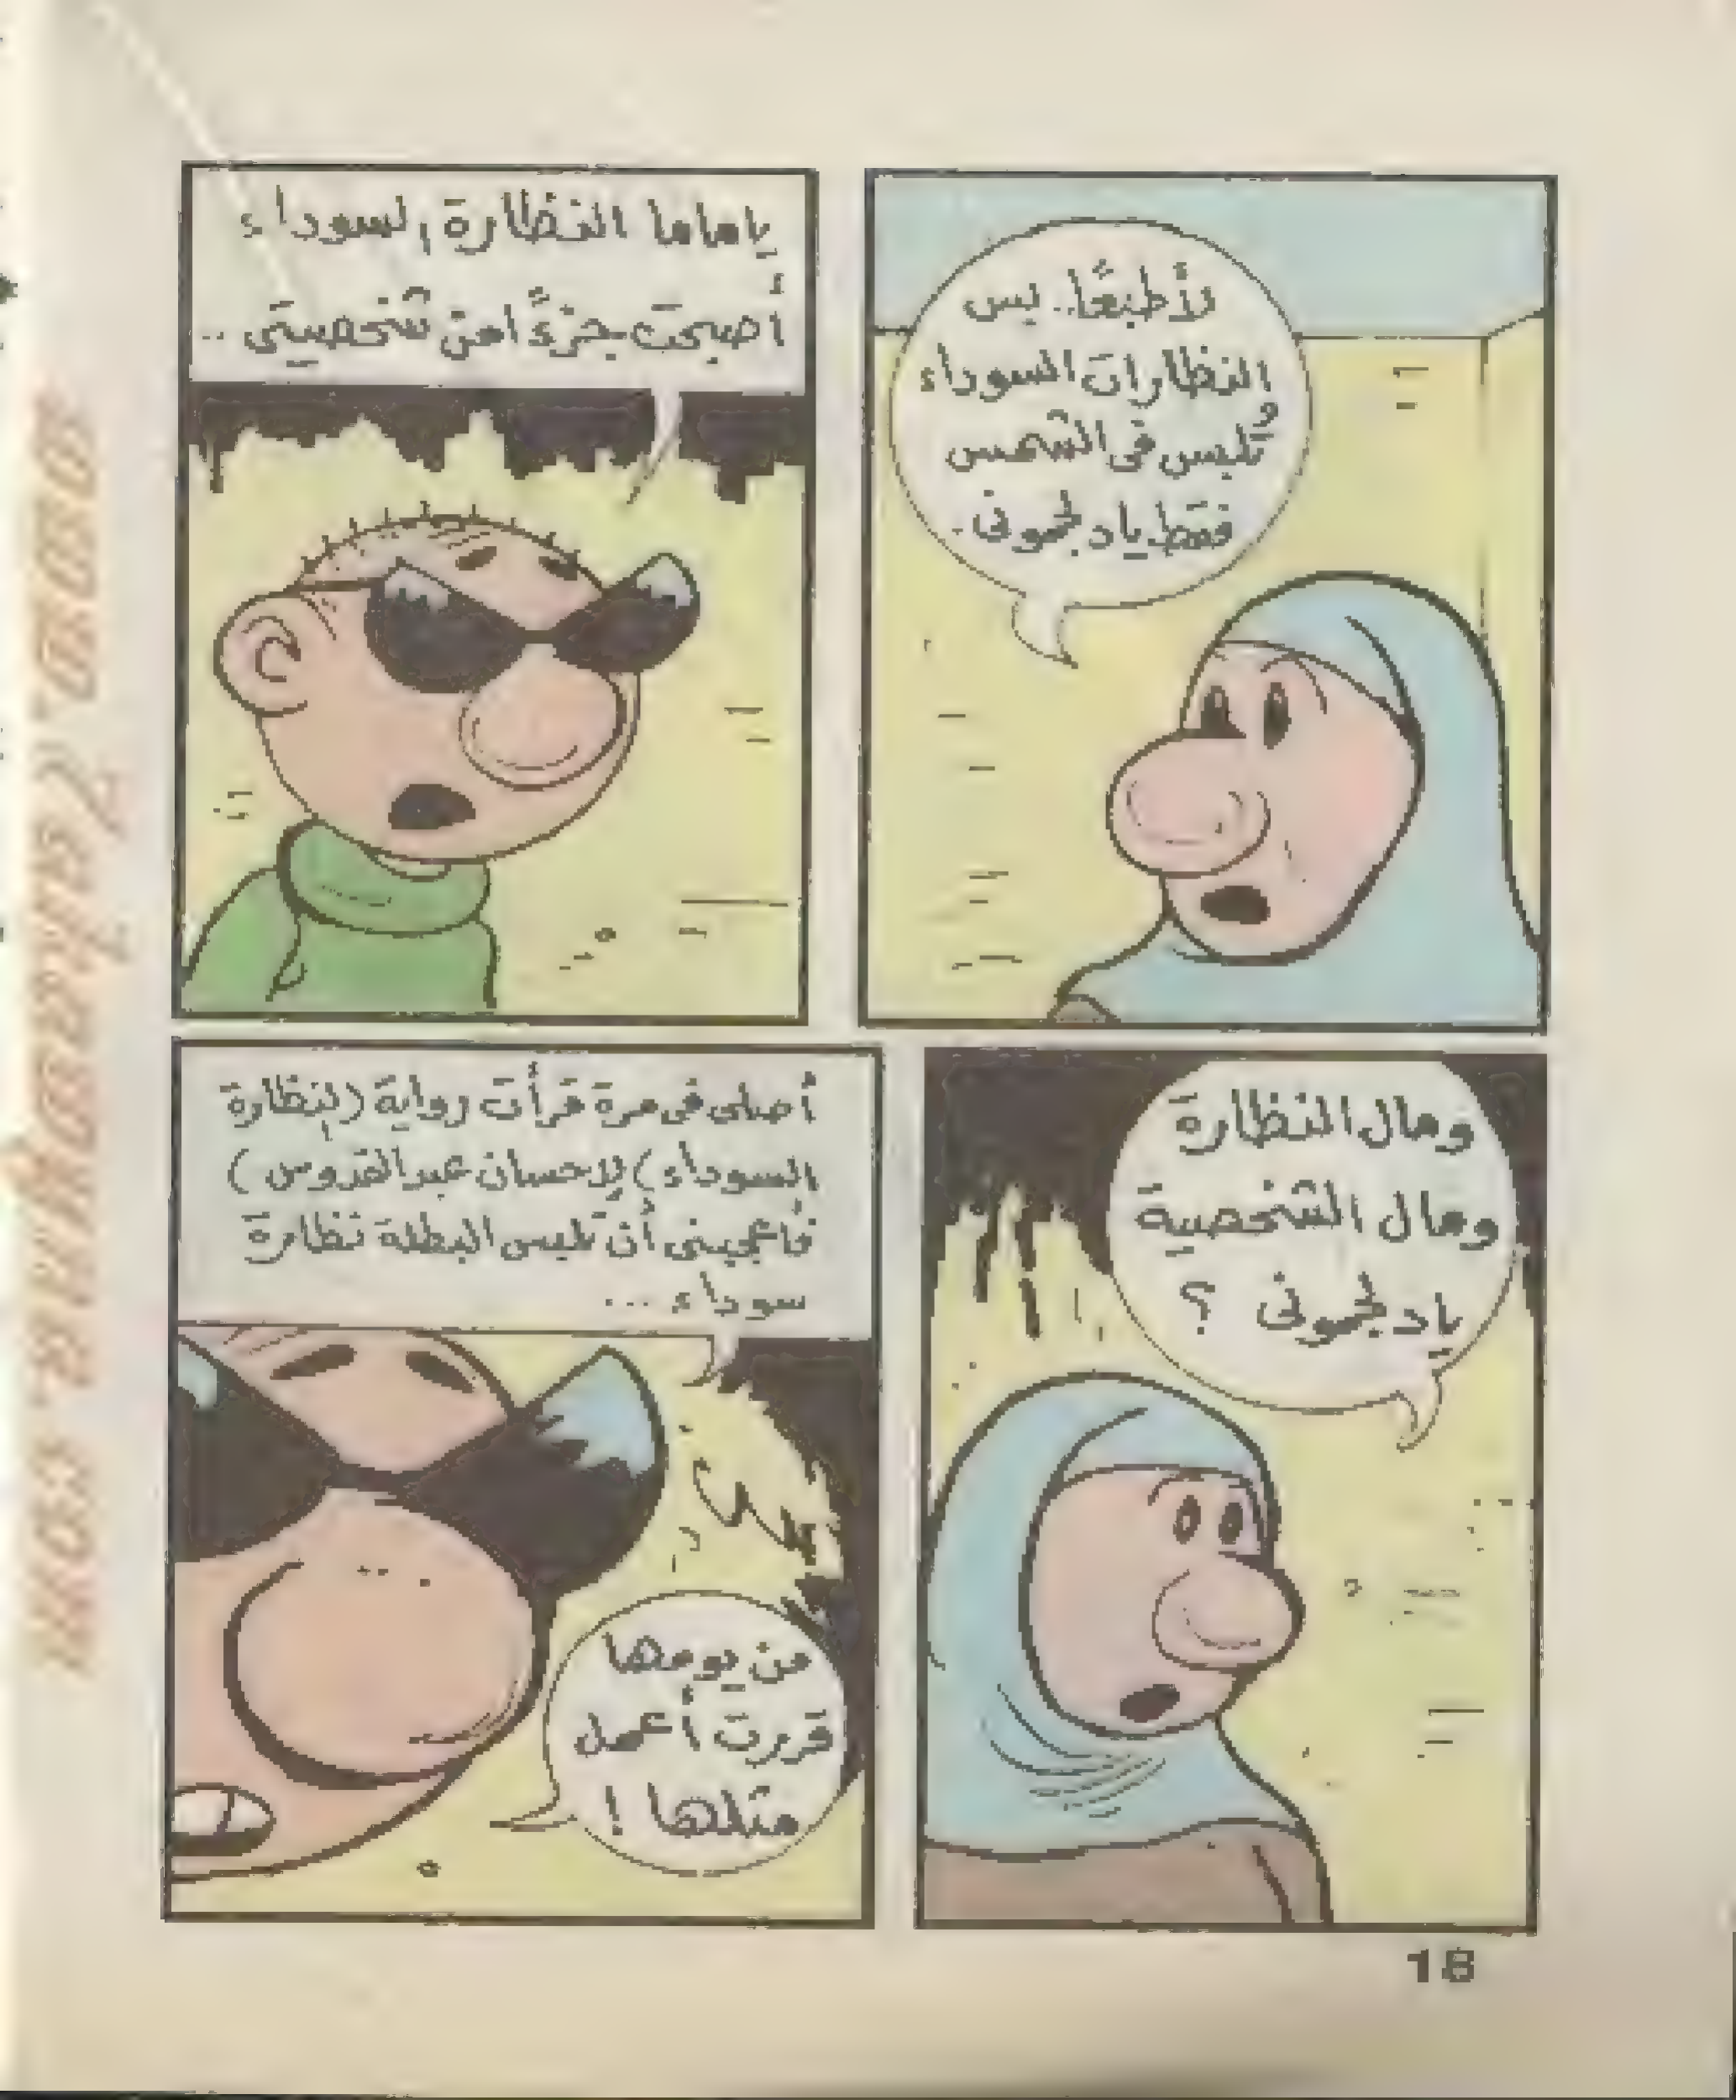 لأ طبعًا.. بس
النظارات السوداء
تُلبس فى الشمس
فقط ياد لجمونى.
ياماما النظارة السوداء
أصبحت جزءً امن شخصيتى ..
ومال النظارة
ومال الشخصية
ياد لجمونى ؟
أصلى فى مرة قرأت رواية (النظارة
السوداء) لإحسان عبدالقدوس)
فأعجبنى أن تلبس البطلة نظارة
سوداء ...
من يومها
قررت أعمل
مثلها !
18